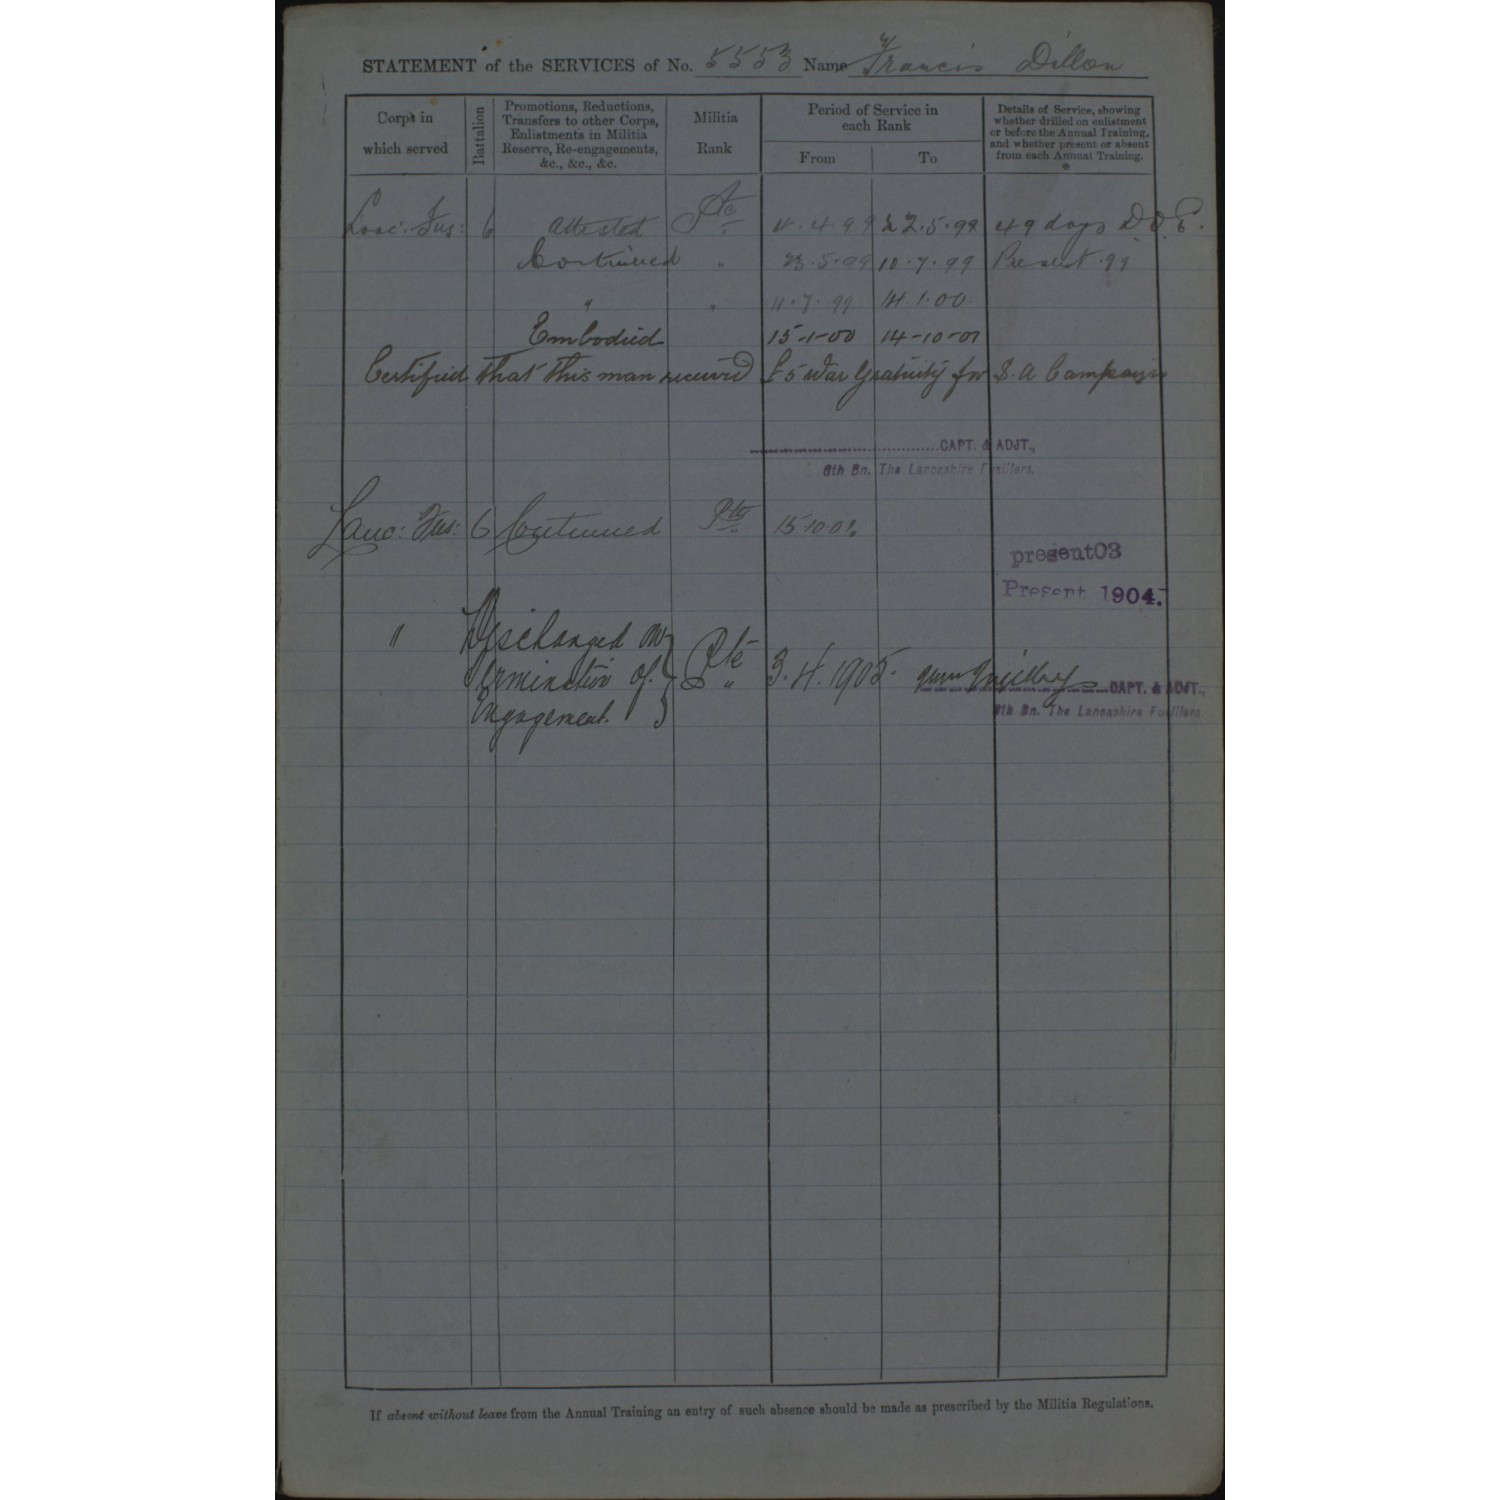 STATEMENT of the SERVICES of No. 5553 Name Francis Dillon
Corps in which served
Battalion
Promotions, Reductions, Transfers to other Corps, Enlistments in Militia Reserve, Re-engagements, &c., &c., &c.
Militia Rank
Period of Service in each Rank
From To
Details of Service, showing whether drilled on enlistment or before the Annual Training, and whether present or absent from each Annual Training.
Lanc: Fus: 6 Attested Pte 4.4.99 22.5.99 49 days D.O.E.
Continued " 23.5.99 10.7.99 Present .99
" " 11.7.99 14.1.00
Embodied 15-1-00 14-10-01
Certified that this man received £5 War Gratuity for S.A Campaign
CAPT. & ADJT.,
6th Bn. The Lancashire Fusiliers.
Lanc: Fus: 6 Continued Pte 15.10.01
present03
Present 1904.
" Discharged on Pte 3.4.1905.
termination of "
Engagement.
CAPT. & ADJT.,
6th Bn. The Lancashire Fusiliers
If absent without leave from the Annual Training an entry of such absence should be made as prescribed by the Militia Regulations.